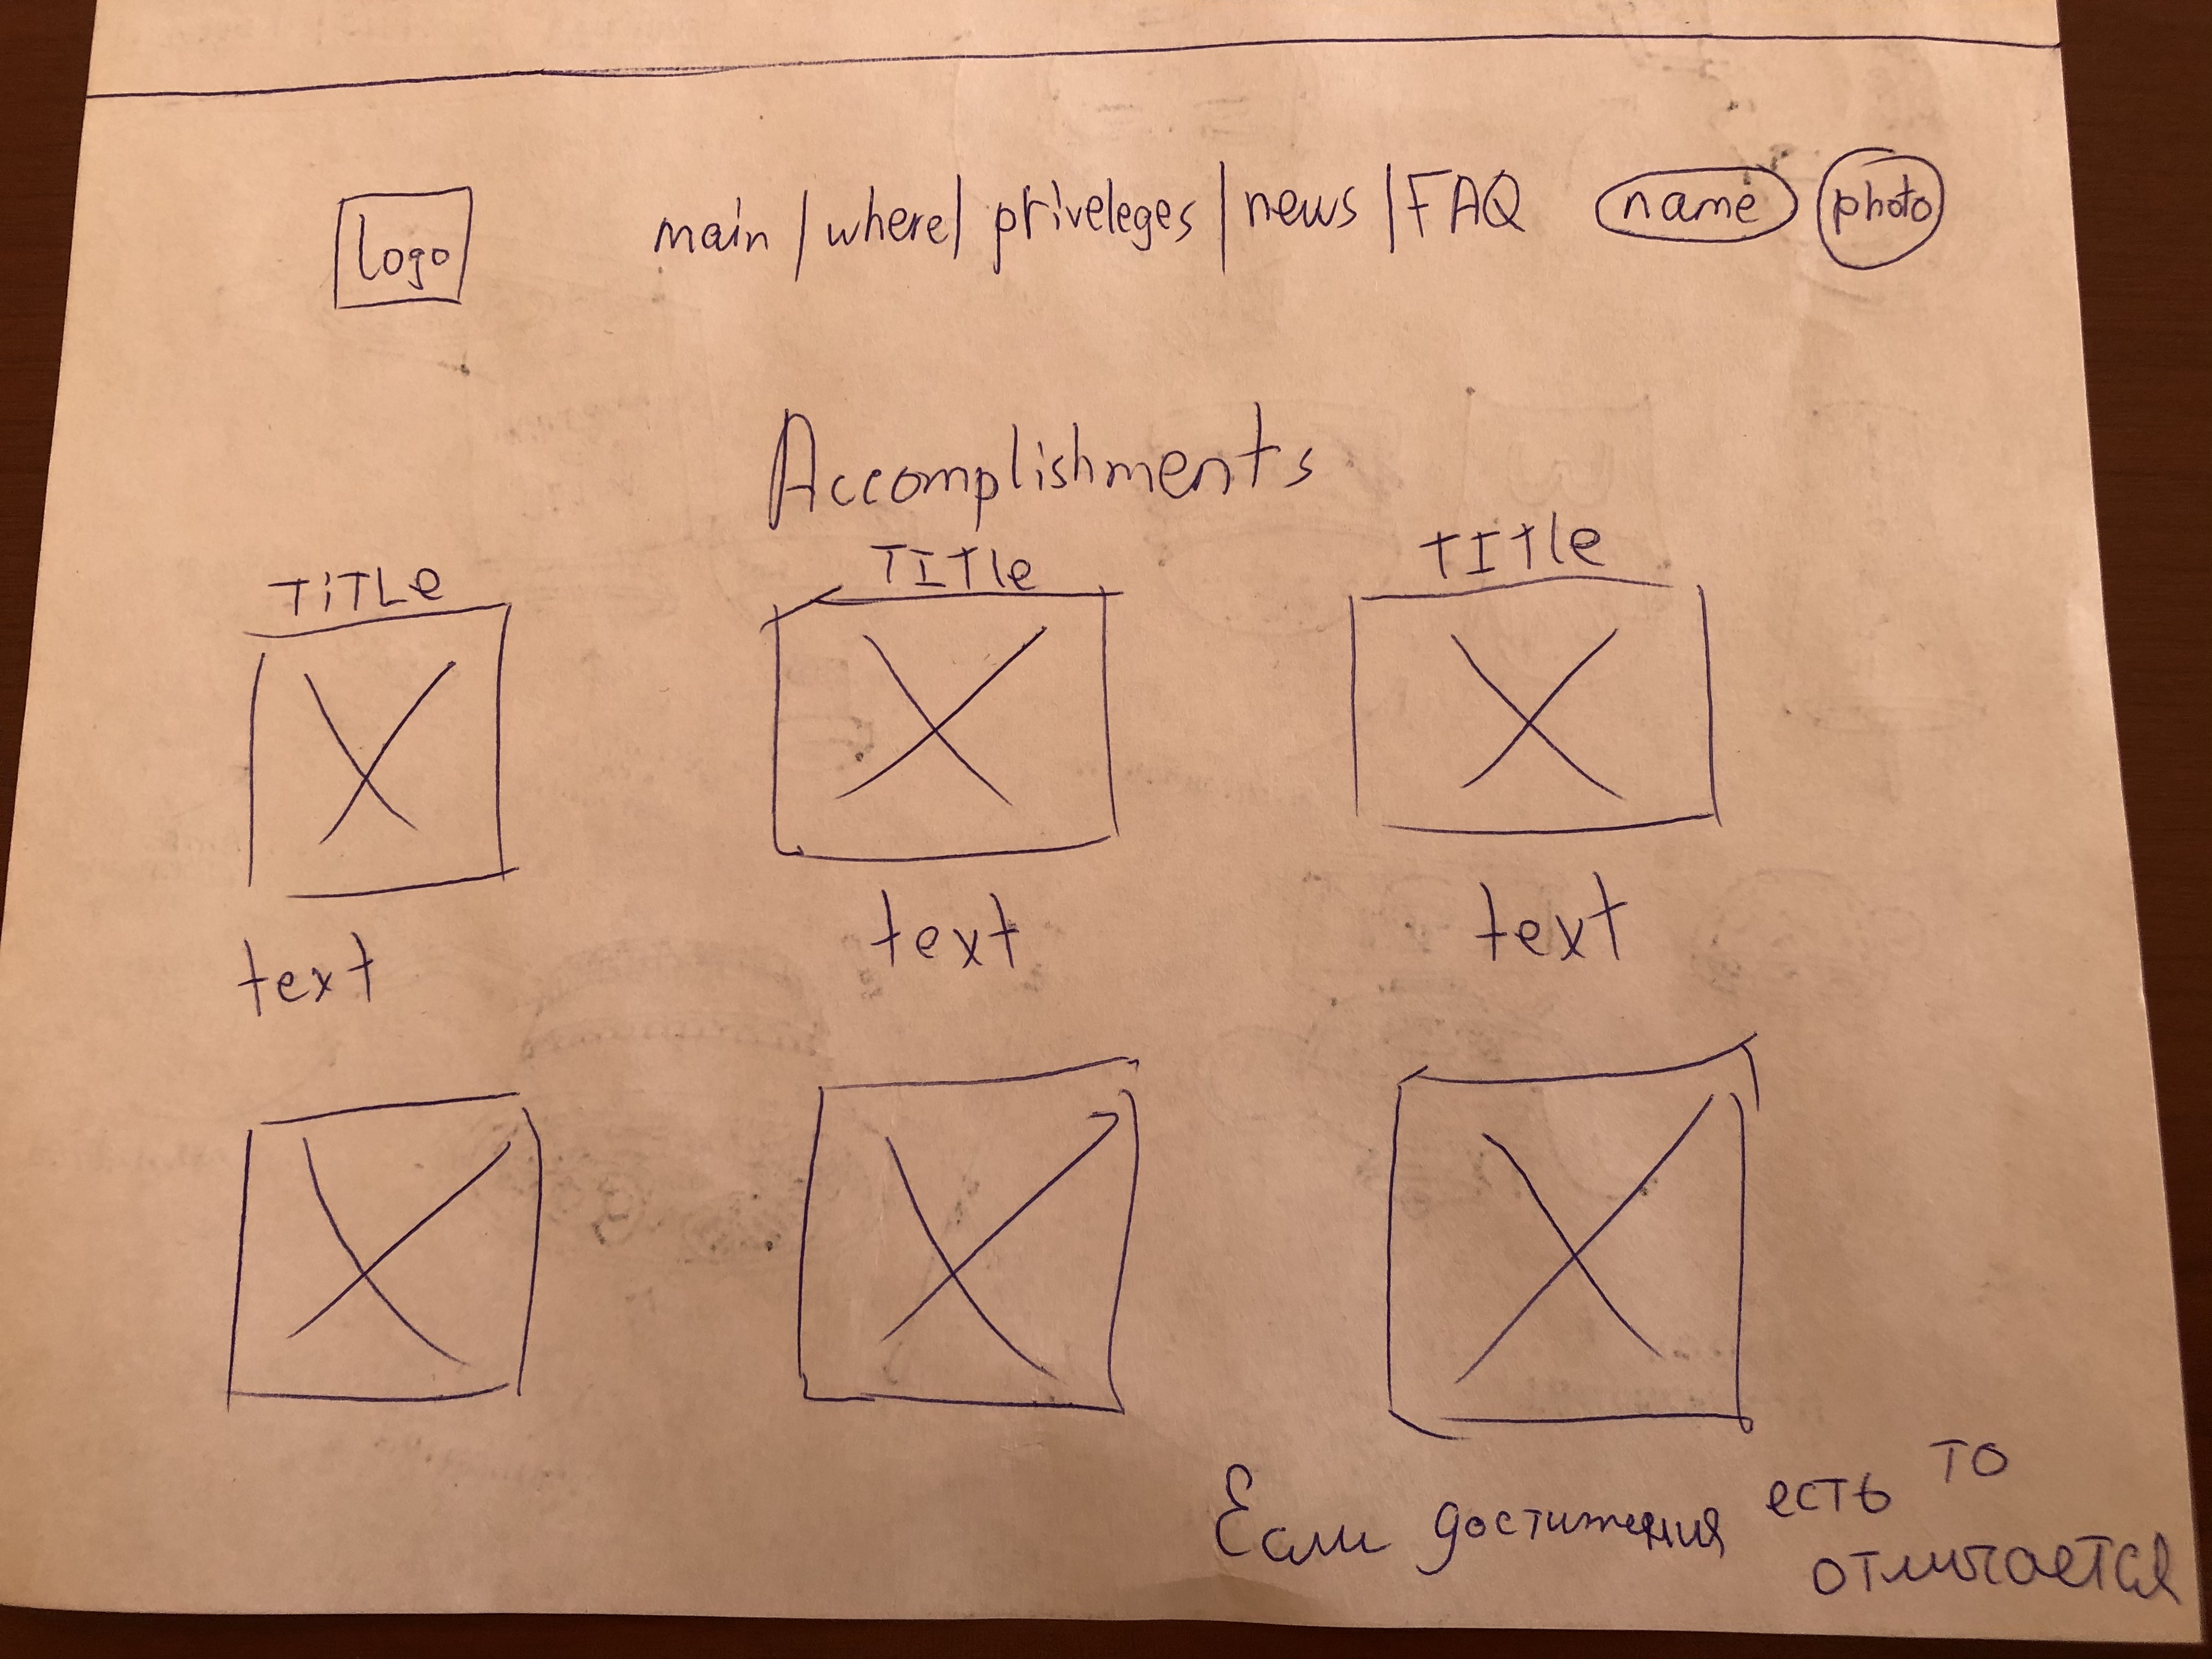 logo main | where | priveleges | news | FAQ name photo
Accomplishments
TiTLe TITle TITle
text text text
Если достижения есть то
отличается